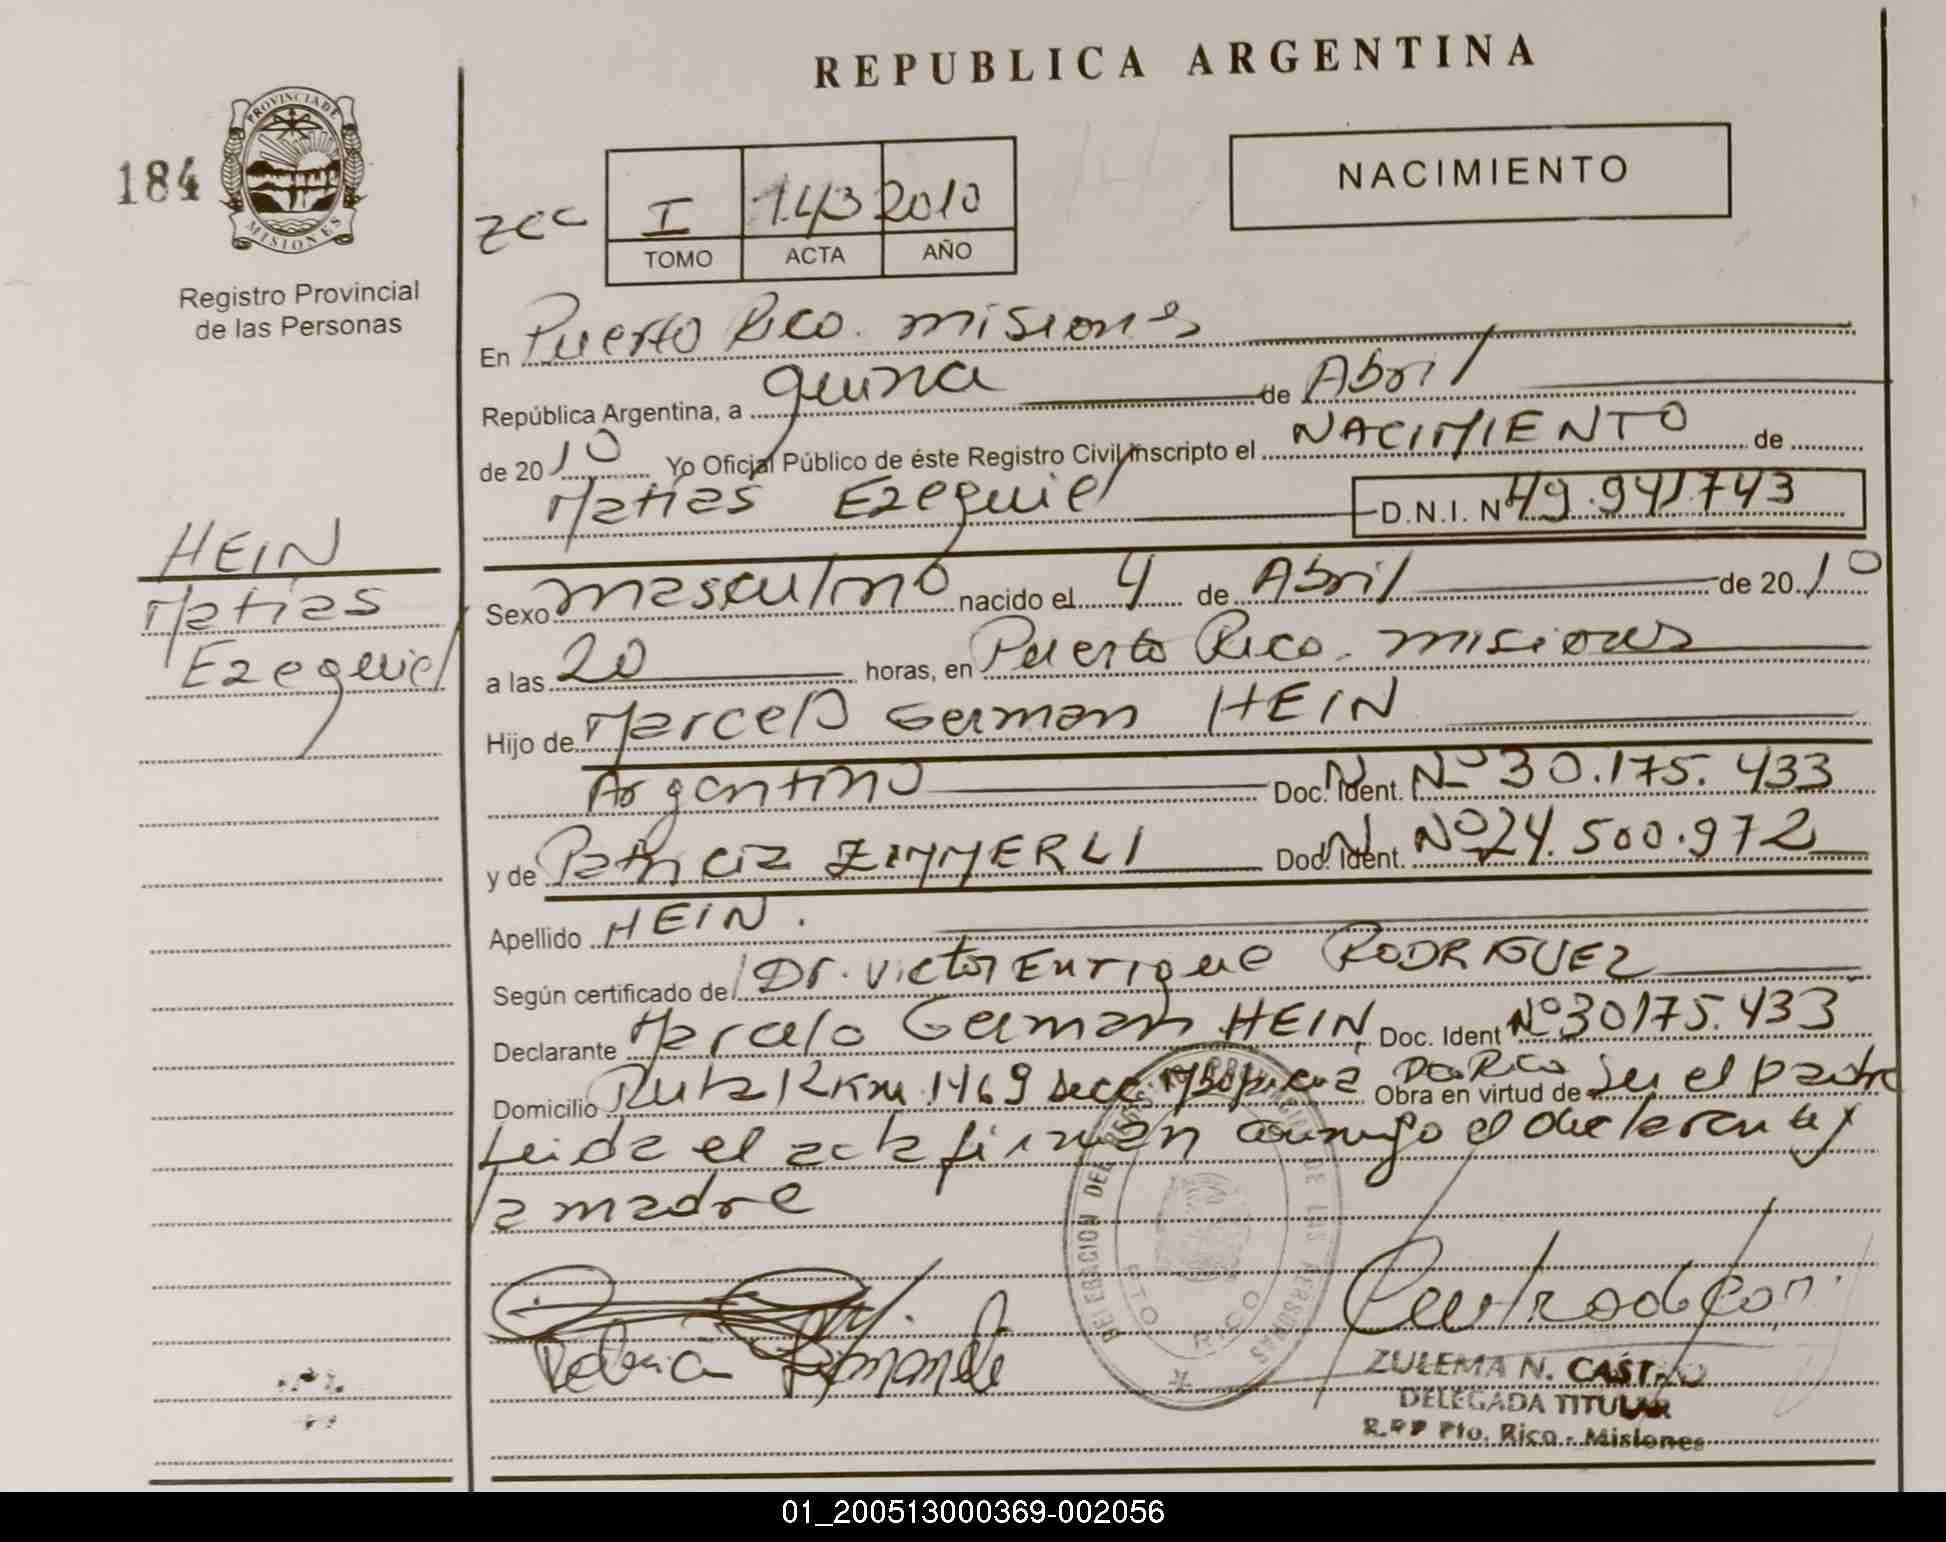 REPUBLICA ARGENTINA
PROVINCIA DE
MISIONES
184
Registro Provincial
de las Personas
NACIMIENTO
I 143 2010
TOMO ACTA AÑO
En Puerto Rico. misiones
República Argentina, a quince de Abril
de 2010 Yo Oficial Público de éste Registro Civil inscripto el NACIMIENTO de
Matias Ezequiel D.N.I. Nº 49.941743
HEIN
Matias
Ezequiel
Sexo masculino nacido el 4 de Abril de 2010
a las 20 horas, en Puerto Rico. misiones
Hijo de Marcelo German HEIN
Argentino Doc. Ident. Nº 30.175.433
y de Patricia ZIMMERLI Doc. Ident. Nº 24.500.972
Apellido HEIN.
Según certificado de Dr. Victor Enrique RODRIGUEZ
Declarante Marcelo German HEIN Doc. Ident Nº 30175.433
Domicilio Ruta 12 Km 1469 Obra en virtud de ser el padre
Leida el acta firman conmigo el declarante y
la madre
DELEGACION DEL REGISTRO PROVINCIAL DE LAS PERSONAS
PTO. RICO
ZULEMA N. CASTRO
DELEGADA TITULAR
R.PP Pto. Rico - Misiones
01_200513000369-002056